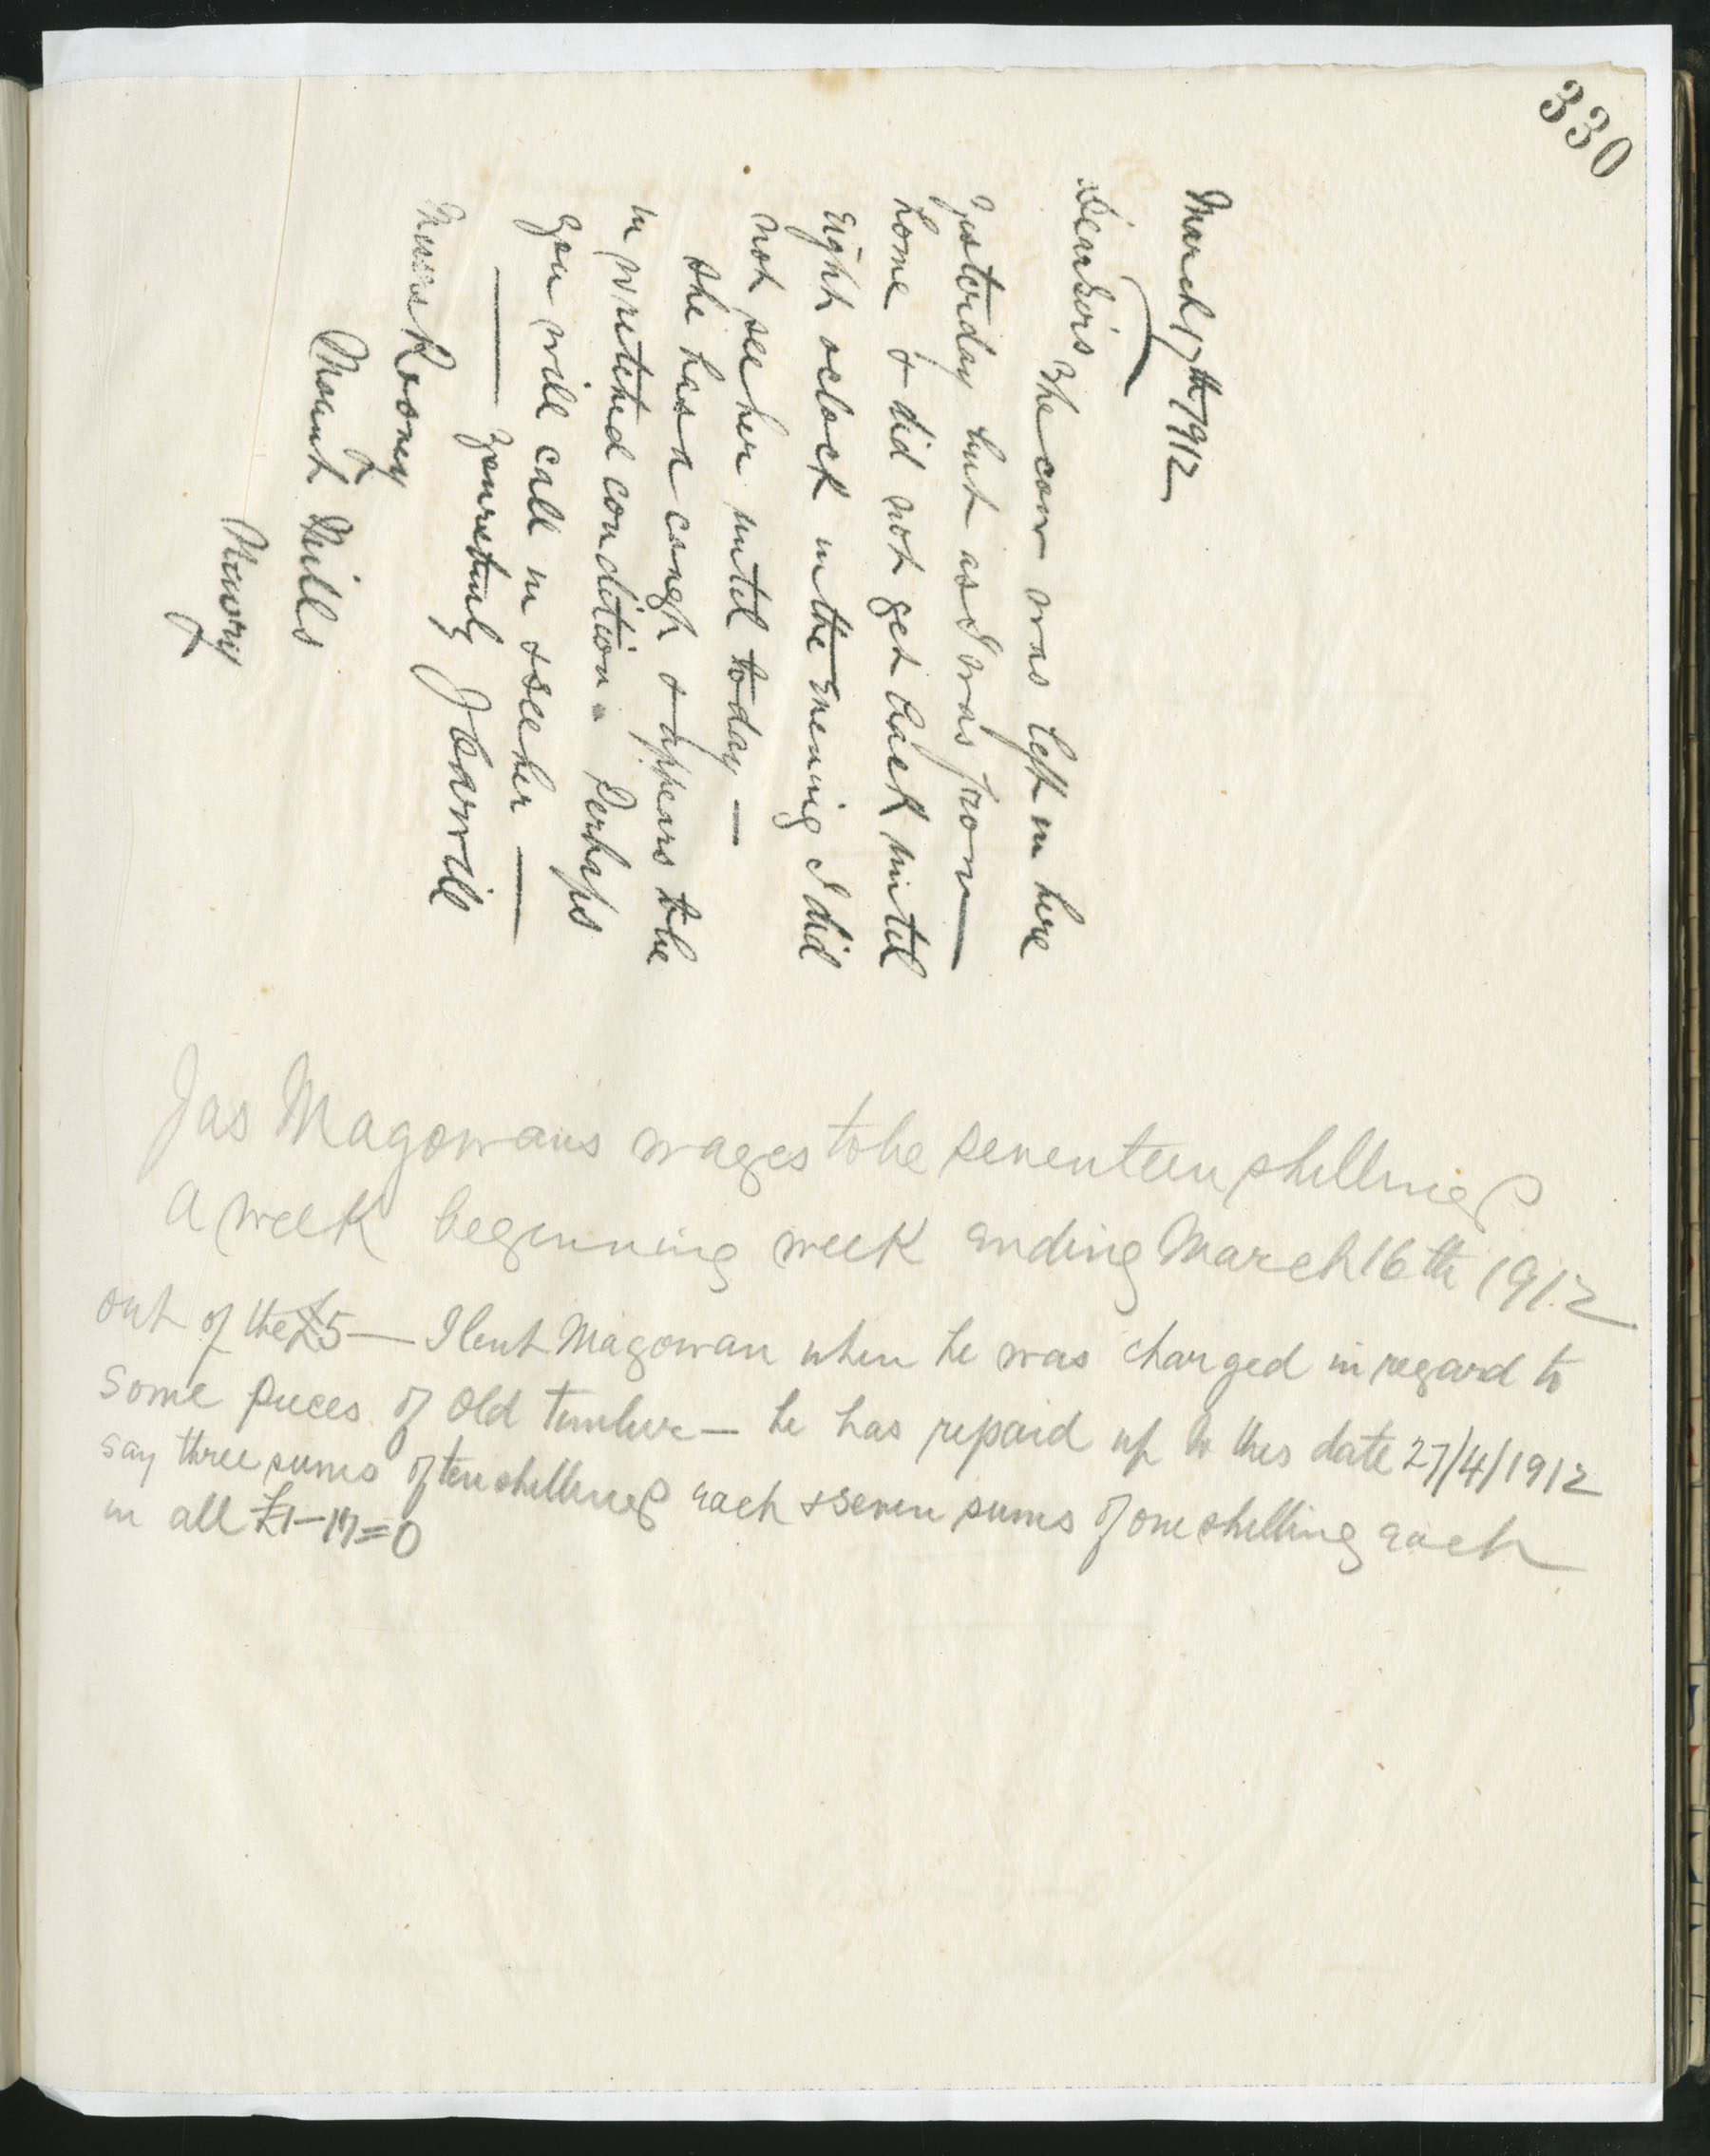 330
March 17th 1912
Dear Sirs
The cow was left in here
yesterday but as I was from
home & did not get back until
eight oclock in the evening I did
not see her until today —
She has a cough & appears to be
in wretched condition. Perhaps
you will call in & see her —
— Yours truly
Messrs Rooney
Mount Mills
Newry
Jas Magowans wages to be seventeen shillings
a week beginning week ending March 16th 1912
out of the £5 — I lent Magowan when he was charged in regard to
some pieces of old timber — he has repaid up to this date 27/4/1912
say three sums of ten shillings each & seven sums of one shilling each
in all £1-17=0